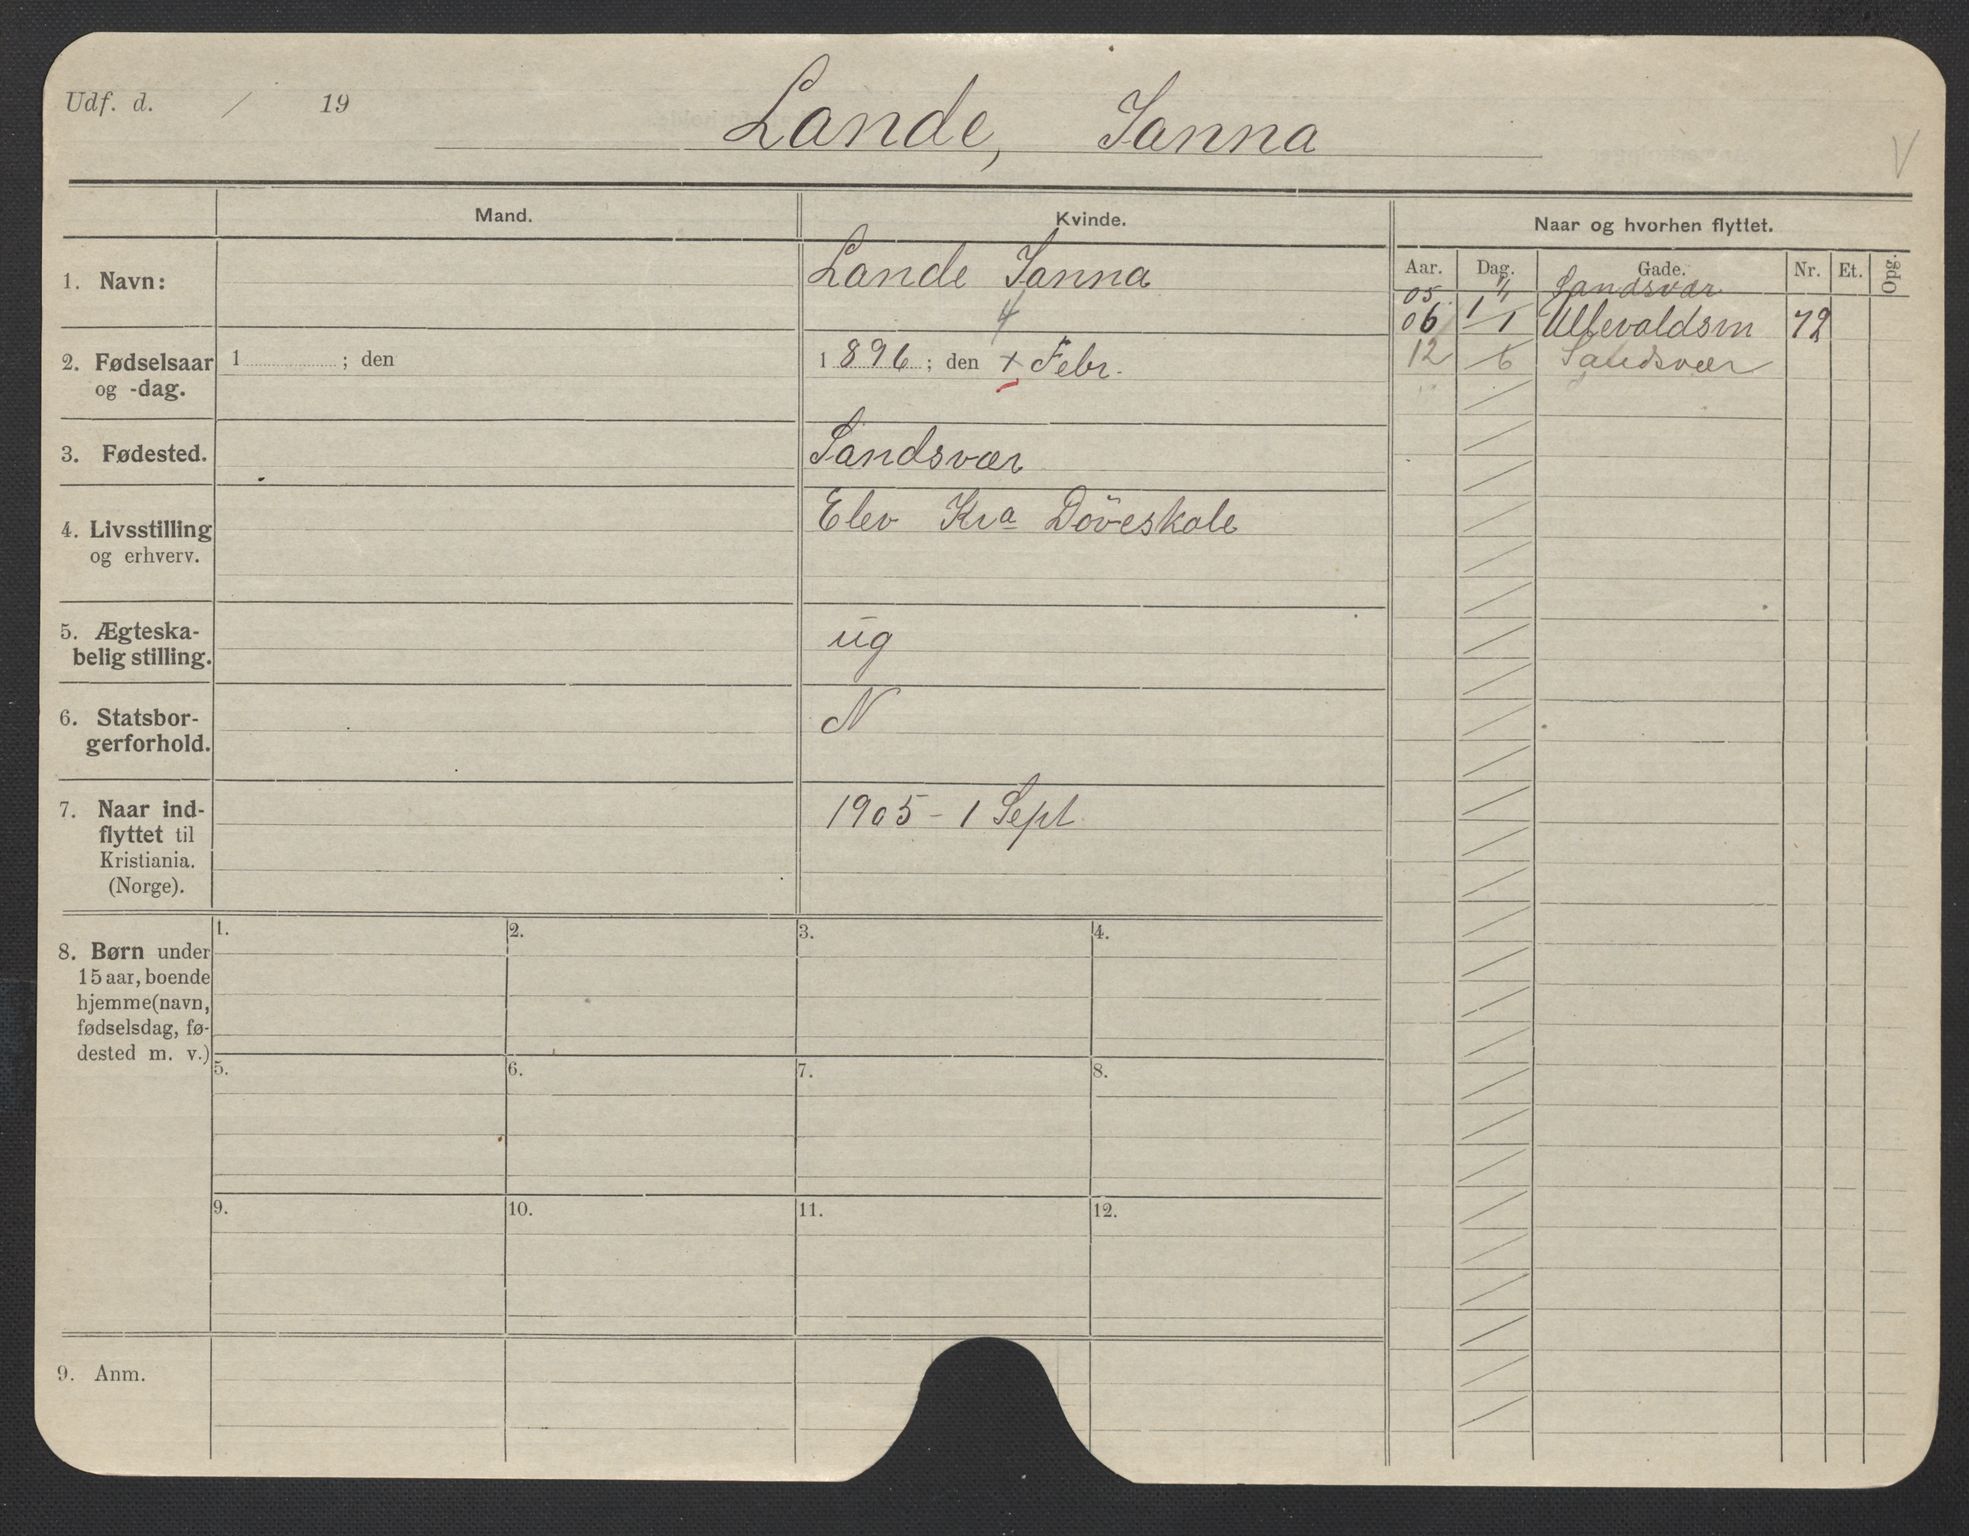 Udf. d. / 19
Lande, Janna
V
Mand.
Kvinde.
Naar og hvorhen flyttet.
Aar. Dag. Gade. Nr. Et. Opg.
1. Navn:
Lande Janna
4
05 Sandsvær
06 1/1 Ullevoldsvn 72
12 /6 Sandsvær
2. Fødselsaar
og -dag.
1 ; den
1896 ; den Febr.
3. Fødested.
Sandsvær
4. Livsstilling
og erhverv.
Elev Kra Döveskole
5. Ægteska-
belig stilling.
ug
6. Statsbor-
gerforhold.
N
7. Naar ind-
flyttet til
Kristiania.
(Norge).
1905 - 1 Sept
8. Børn under
15 aar, boende
hjemme(navn,
fødselsdag, fø-
dested m. v.)
1. 2. 3. 4.
5. 6. 7. 8.
9. 10. 11. 12.
9. Anm.